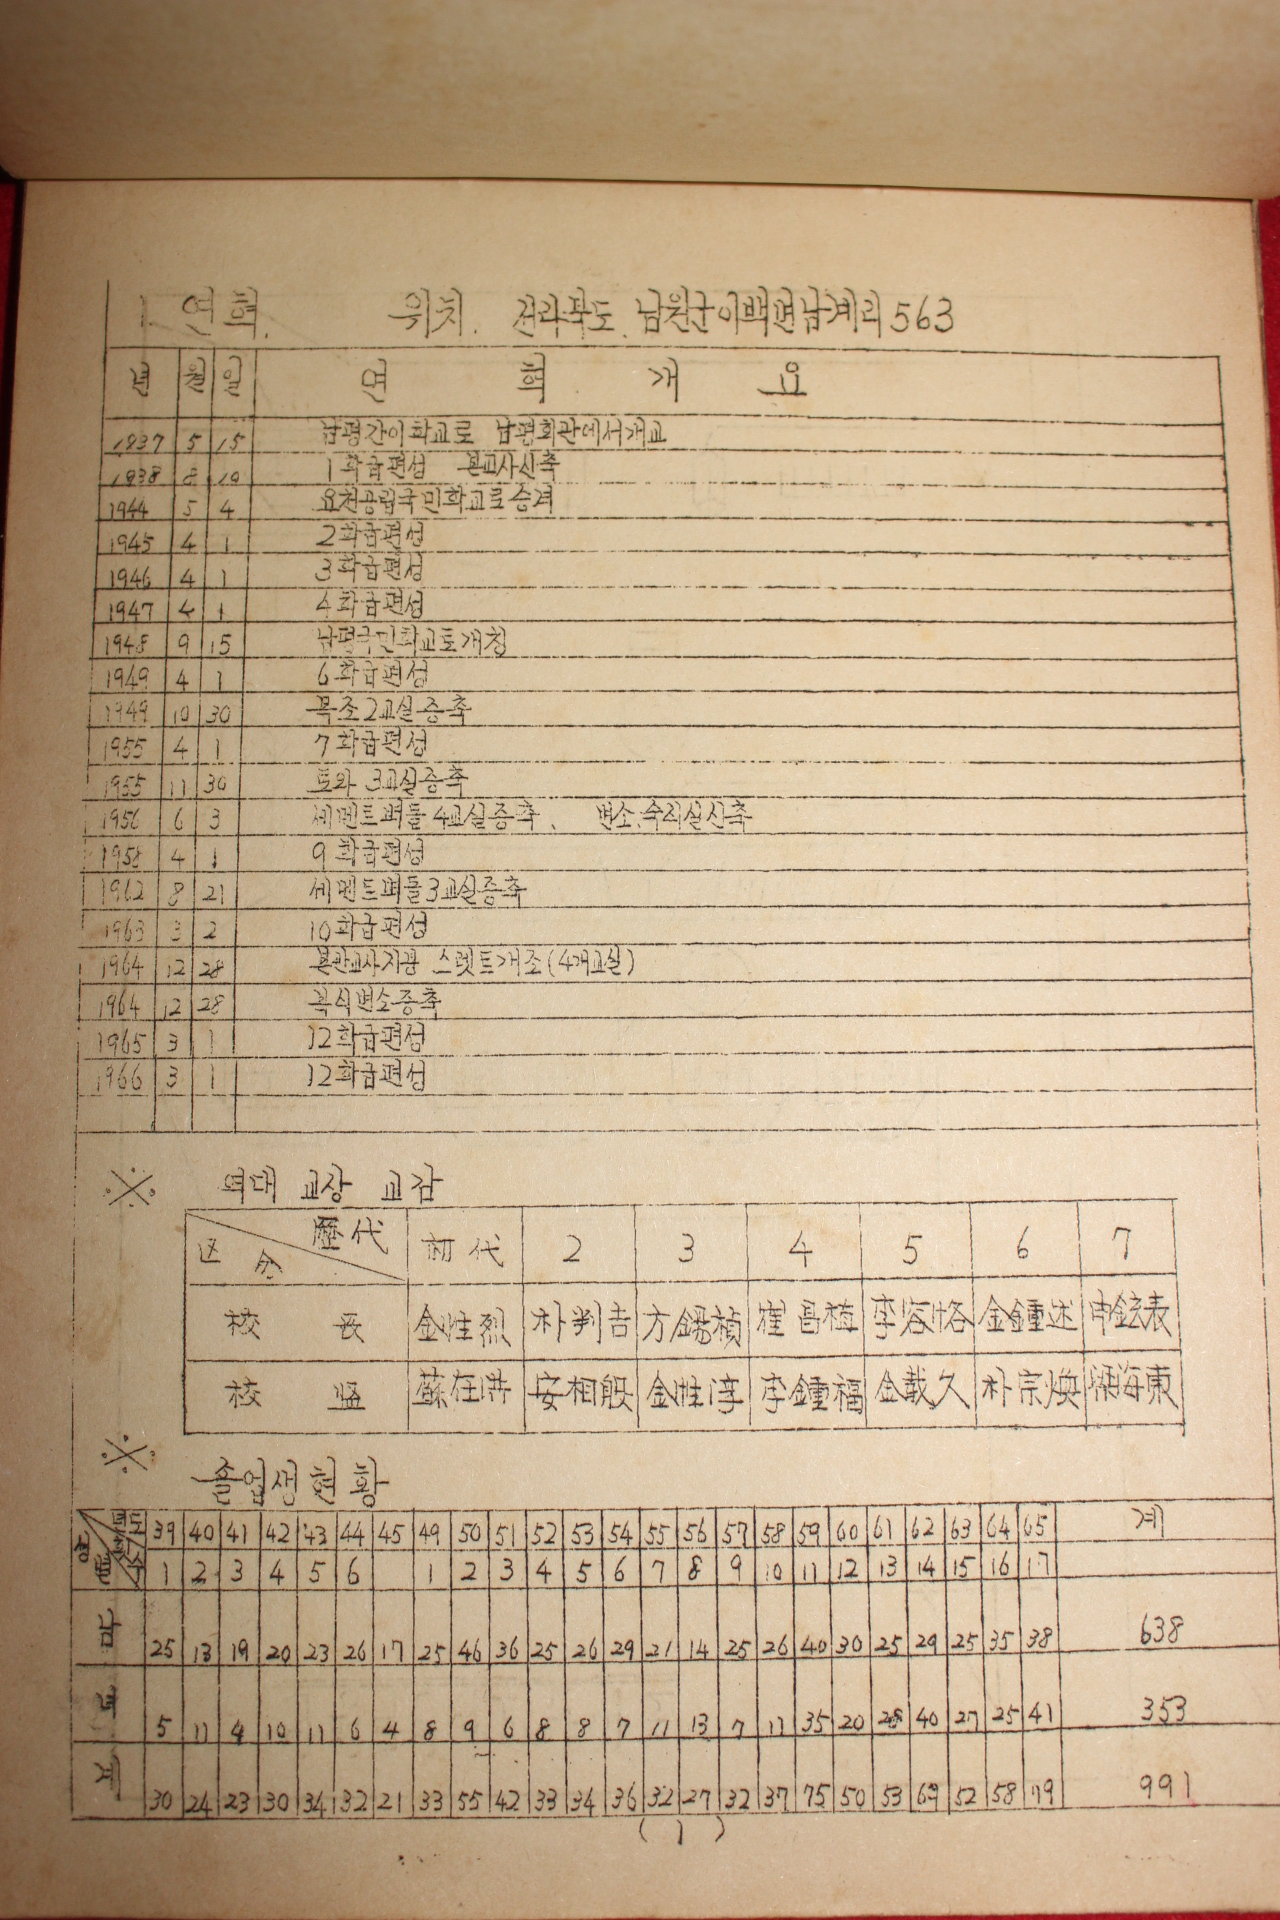 1. 연혁. 위치. 전라북도. 남원군이백면남계리563
년 월 일 연 혁 개 요
1937 5 15 남평간이학교로 남평회관에서개교
1938 8 10 1학급편성 본교사신축
1944 5 4 요천공립국민학교로승격
1945 4 1 2학급편성
1946 4 1 3학급편성
1947 4 1 4학급편성
1948 9 15 남평국민학교로개칭
1949 4 1 6학급편성
1949 10 30 목조2교실증축
1955 4 1 7학급편성
1955 11 30 토와 3교실증축
1956 6 3 세멘트벽돌 4교실증축. 변소.숙직실신축
1958 4 1 9학급편성
1962 8 21 세멘트벽돌3교실증축
1963 3 2 10학급편성
1964 12 28 본관교사지붕 스렛트개조(4개교실)
1964 12 28 변소증축
1965 3 1 12학급편성
1966 3 1 12학급편성
※ 역대 교장 교감
区分 歷代 初代 2 3 4 5 6 7
校長 金性烈 朴判吉 方錫楨 崔昌植 李容恪 金鍾述 申鉉表
校監 蘇在洪 安相殷 金性淳 李鍾福 金載久 朴宗煥 海東
※ 졸업생현황
년도 39 40 41 42 43 44 45 49 50 51 52 53 54 55 56 57 58 59 60 61 62 63 64 65 계
성별 회수 1 2 3 4 5 6 1 2 3 4 5 6 7 8 9 10 11 12 13 14 15 16 17
남 25 13 19 20 23 26 17 25 46 36 25 26 29 21 14 25 26 40 30 25 29 25 35 38 638
녀 5 11 4 10 11 6 4 8 9 6 8 8 7 11 13 7 11 35 20 28 40 27 25 41 353
계 30 24 23 30 34 32 21 33 55 42 33 34 36 32 27 32 37 75 50 53 69 52 58 79 991
(1)